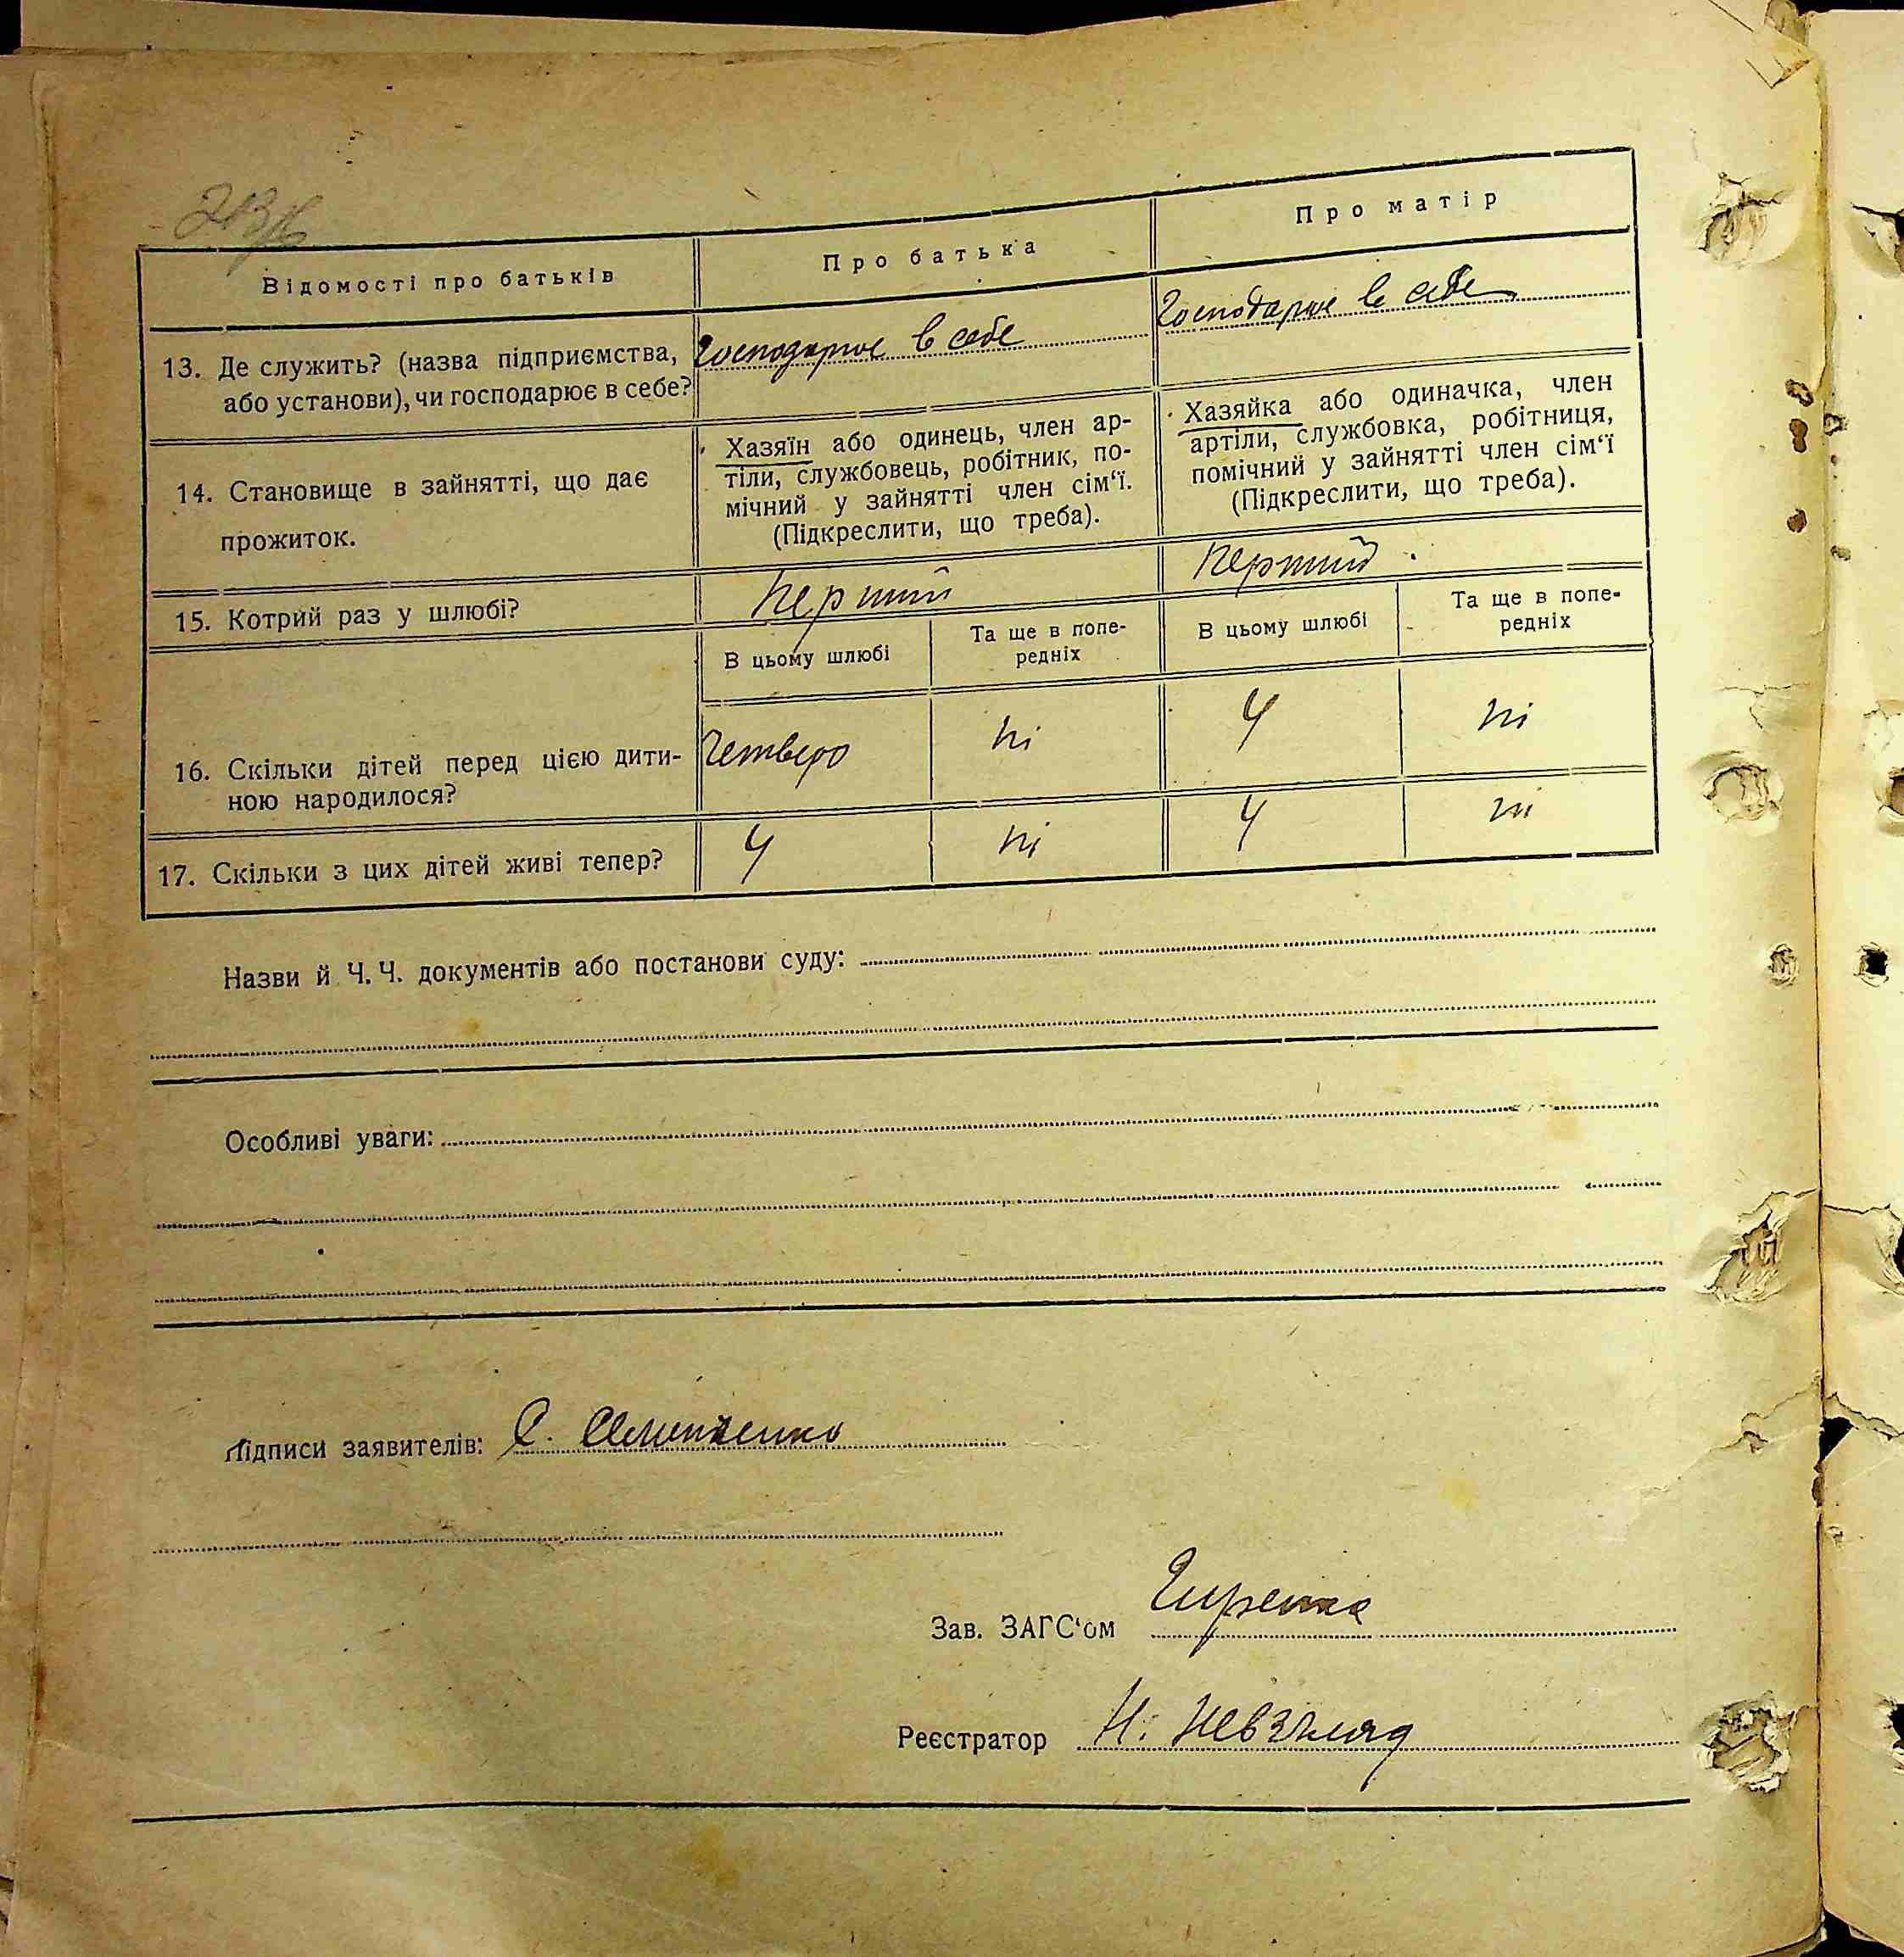 Відомості про батьків
Про батька
Про матір
13. Де служить? (назва підприємства,
або установи), чи господарює в себе?
Господарює в себе
Господарює в себе
14. Становище в зайнятті, що дає
прожиток.
Хазяїн або одинець, член ар-
тіли, службовець, робітник, по-
мічний у зайнятті член сім‘ї.
(Підкреслити, що треба).
Хазяйка або одиначка, член
артіли, службовка, робітниця,
помічний у зайнятті член сім‘ї
(Підкреслити, що треба).
15. Котрий раз у шлюбі?
Перший
Перший.
В цьому шлюбі
Та ще в попе-
редніх
В цьому шлюбі
Та ще в попе-
редніх
16. Скільки дітей перед цією дити-
ною народилося?
Четверо
ні
4
ні
17. Скільки з цих дітей живі тепер?
4
ні
4
ні
Назви й Ч. Ч. документів або постанови суду:
Особливі уваги:
Підписи заявителів: С.
Зав. ЗАГС‘ом
Реєстратор Н. Невзгляд